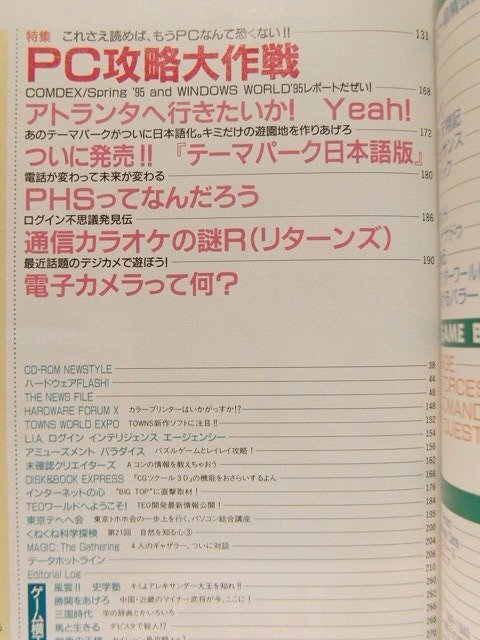 特集 これさえ読めば、もうPCなんて恐くない!! 131
PC攻略大作戦
COMDEX/Spring '95 and WINDOWS WORLD'95レポートだぜい! 168
アトランタへ行きたいか! Yeah!
あのテーマパークがついに日本語化。キミだけの遊園地を作りあげろ 172
ついに発売!!『テーマパーク日本語版』
電話が変わって未来が変わる 180
PHSってなんだろう
ログイン不思議発見伝 186
通信カラオケの謎R(リターンズ)
最近話題のデジカメで遊ぼう! 190
電子カメラって何?
CD-ROM NEWSTYLE 38
ハードウェアFLASH! 44
THE NEWS FILE 48
HARDWARE FORUM X カラープリンターはいかがっすか!? 148
TOWNS WORLD EXPO TOWNS新作ソフトに注目!! 152
L.I.A. ログイン インテリジェンス エージェンシー 154
アミューズメント パラダイス パズルゲームとレイレイ攻略! 156
未確認クリエイターズ Aコンの情報を教えちゃおう 162
DISK&BOOK EXPRESS 「CGツール3D」の機能をおさらいするよん 166
インターネットの心 "BIG TOP"に直撃取材! 176
TEOワールドへようこそ! TEO開発最新情報公開! 184
東京テヘヘ会 東京トホホ会の一歩上を行く、パソコン総合講座 194
くねくね科学探検 第21回 自然を知る心③ 200
MAGIC:The Gathering 4人のギャザラー、ついに対談 204
データホットライン 206
Editorial Log 210
風雲!! 史学塾 キミはアレキサンダー大王を知れ!! 260
勝鬨をあげろ 中国・近畿のマイナー武将が今、ここに! 262
三国時代 字の辞典とかいろいろ 264
馬と生きる ダビスタで殺人!? 266
268
270
ゲーム横
GAME B
FORCES
QUEST